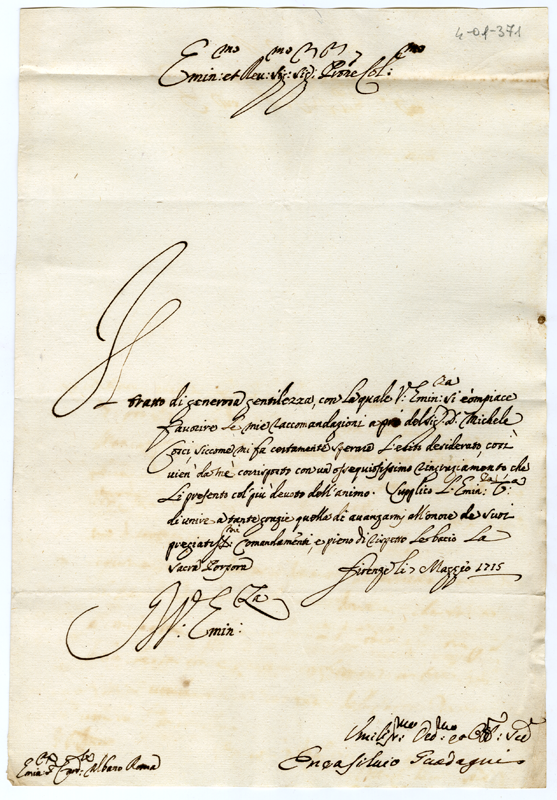 4-01-371
Emin:mo et Reu:mo Sig:r Sig:r Pr͠one Col:mo
Il tratto di generosa gentilezza, con la quale V: Emin:za si compiace
favorire le mie raccomandazioni a prò del Sig:r D. Michele
Corsi siccome mi fa certamente sperare l'esito desiderato, così
uien da mè corrisposto con un ossequiosissimo ringraziamento che
Le presento col più deuoto dell'animo. Supplico l'Emin:za V:ra
di unire a tante grazie quella di auanzarmi all'onore de suoi
pregiatiss:mi Comandamenti, e pieno di rispetto Le bacio La
Sacra Porpora
Firenze li 7 Maggio 1715
Di V: Emin:za
Vmiliss:mo Deu:mo et Obb:mo Ser:
Eneasiluio Guadagni
Card: Albano Roma